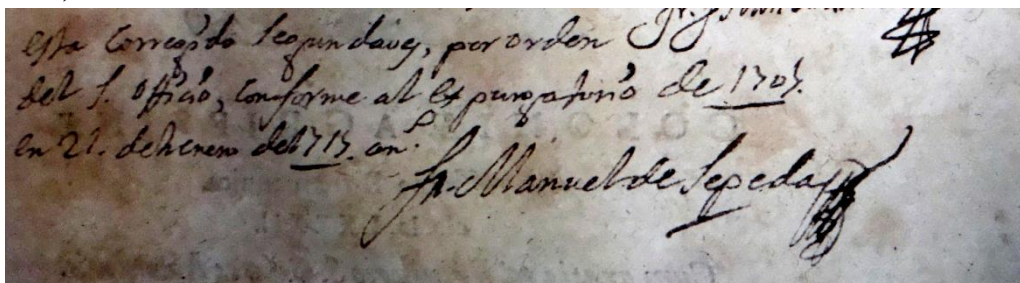 esta Corregido Segundavez, por orden
del S. Officio, conforme al expurgatorio de 1707.
en 21. de henero del 1715. an.
Fr. Manuel de Sepeda